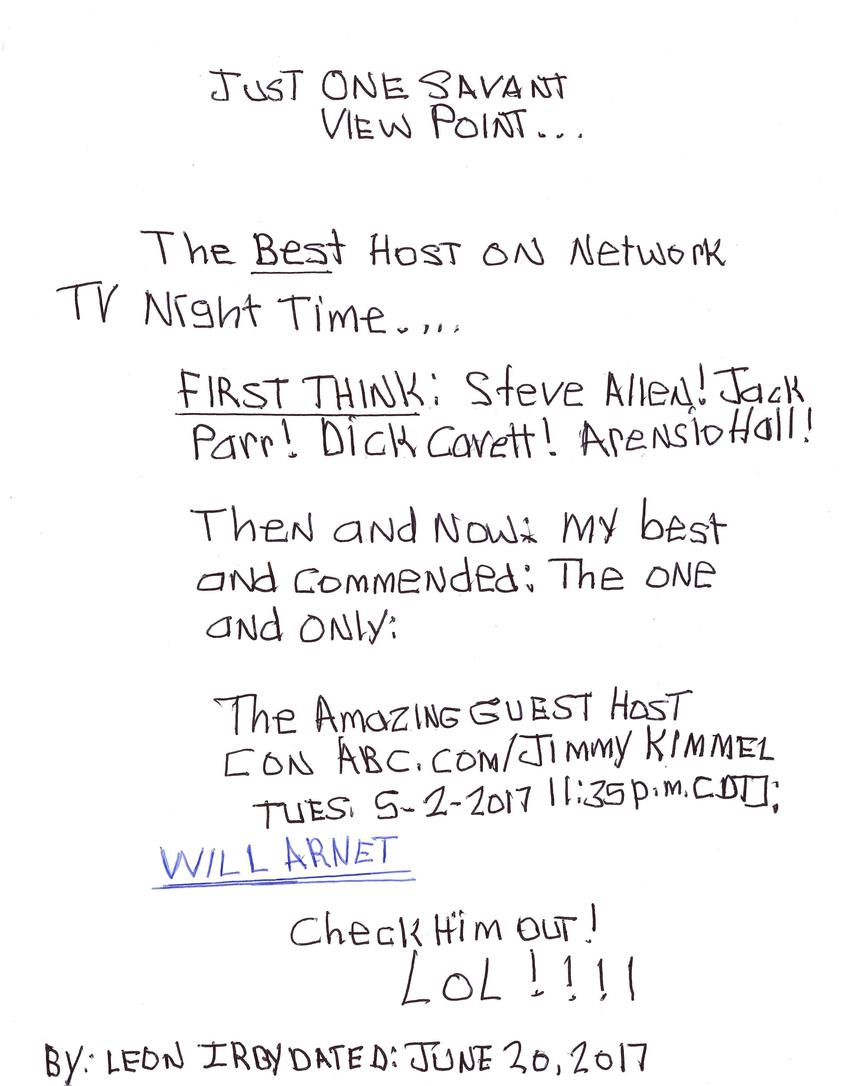 JUST ONE SAVANT
VIEW POINT...
The Best HOST ON Network
TV Night Time....
FIRST THINK: Steve Allen! Jack
Parr! Dick Cavett! Arensio Hall!
Then and Now: my best
and commended: The ONE
and ONly:
The AmaZING GUEST HOST
[ON ABC.COM/JIMMY KIMMEL
TUES. 5-2-2017 11:35 p.m. CDT];
WILL ARNET
Check Him OUT!
LOL!!!!
BY: LEON IRBY DATED: JUNE 20, 2017